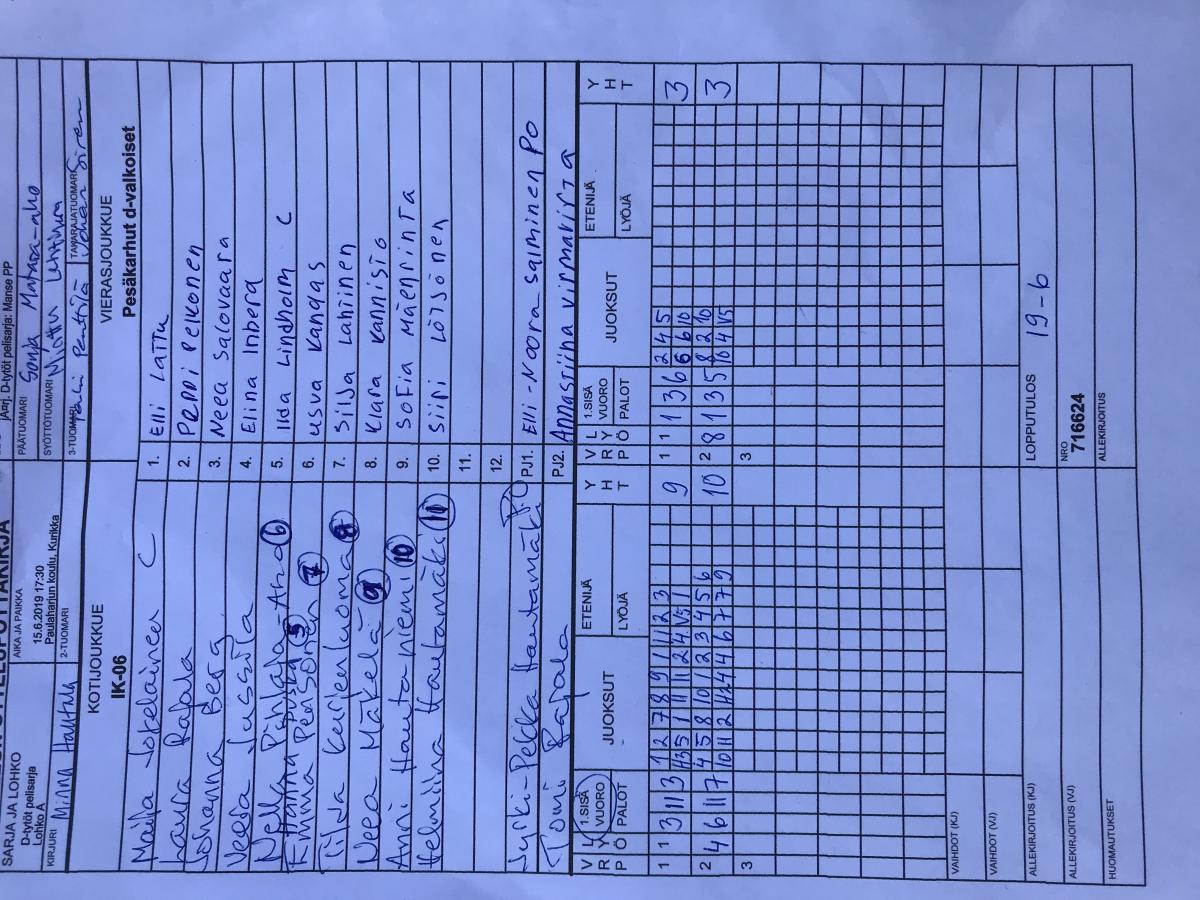 SARJA JA LOHKO
D-tytöt pelisarja
Lohko A
AIKA JA PAIKKA
15.6.2019 17:30
Paulaharjun koulu, Kurikka
D-tytöt pelisarja: Manse PP
PÄÄTUOMARI Sonja Matara-aho
SYÖTTÖTUOMARI Minttu Lehtivura
KIRJURI Minna Hautala
2-TUOMARI
3-TUOMARI Penttilä
TAKARAJATUOMARI Siren
KOTIJOUKKUE
IK-06
VIERASJOUKKUE
Pesäkarhut d-valkoiset
Maija Jokelainen C
1. Elli Lattu
Laura Rajala
2. Peppi Pelkonen
Johanna Berg
3. Neea Salovaara
Veera Jussila
4. Elina Inberg
Nella Pihlaja-Aho 6
5. Ilda Lindholm C
Hanna Pusha 5
Emma Pensonen 7
6. Usva Kangas
Tilda Kurjenluoma 8
7. Silja Lahinen
Neea Mäkelä 9
8. Klara Kannisto
Anni Hautaniemi 10
9. Sofia Mäenrinta
Helmiina Hautamäki 11
10. Siiri Löjsönen
11.
12.
Jyrki-Pekka Hautamäki P.O
PJ1. Elli-Noora Salminen PO
Tomi Rajala
PJ2. Annastiina Virmavirta
V R P
L Y Ö
1.SISÄ
VUORO
PALOT
JUOKSUT
ETENIJÄ
LYÖJÄ
Y H T
V R P
L Y Ö
1.SISÄ
VUORO
PALOT
JUOKSUT
ETENIJÄ
LYÖJÄ
Y H T
1 1 3 11 3
1 2 7 8 9 1 11 2 3
9
1 1 1 3 6
2 4 5
6 6 10
3
2 4 6 11 7
4 5 8 10 1 2 3 4 5 6
10 11 2 4 4 6 7 7 9
10
2 8 1 3 5
8 2 10
10 4 V5
3
3
3
VAIHDOT (KJ)
VAIHDOT (VJ)
ALLEKIRJOITUS (KJ)
LOPPUTULOS 19-6
ALLEKIRJOITUS (VJ)
NRO
716624
HUOMAUTUKSET
ALLEKIRJOITUS